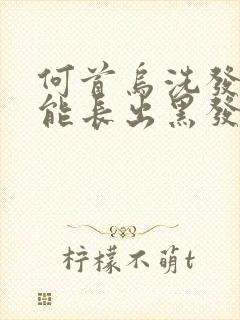 何首烏洗發
能長出黑發
柠檬不萌t